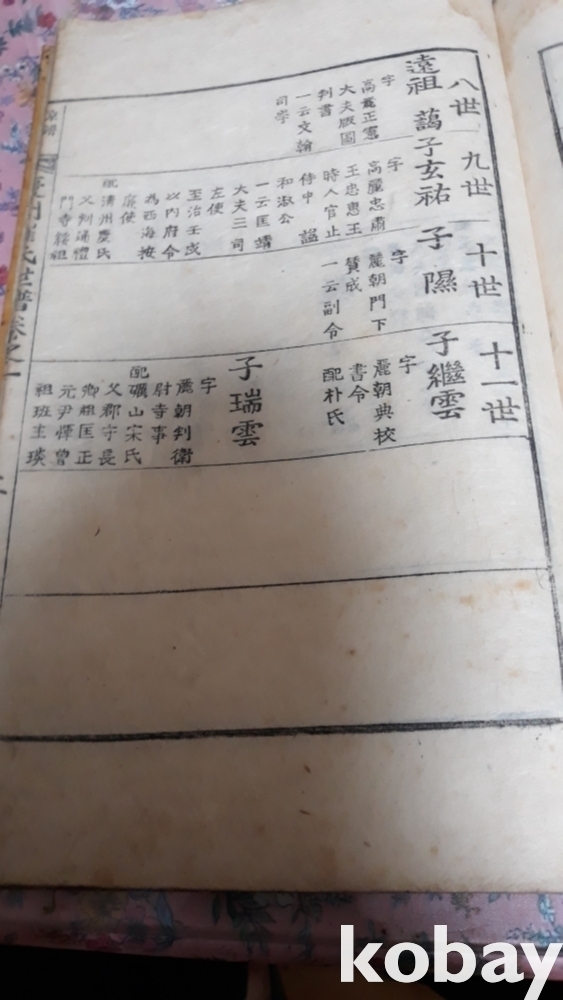 八世
九世
十世
十一世
遠祖 藹
字
高麗正憲
大夫版圖
判書
一云文翰
司學
子玄祐
字
高麗忠肅
王忠惠王
時人官止
侍中 諡
和淑公
一云匡靖
大夫三司
左使
至治壬戌
以內府令
為西海按
廉使
配清州慶氏
父判通禮
門寺綏祖
子隰
字
麗朝門下
贊成
一云副令
子繼雲
字
麗朝典校
書令
配朴氏
子瑞雲
字
麗朝判衛
尉寺事
配礪山宋氏
父郡守長
卿祖匡正
元尹惲曾
祖班主琰
氏世譜卷之一
kobay